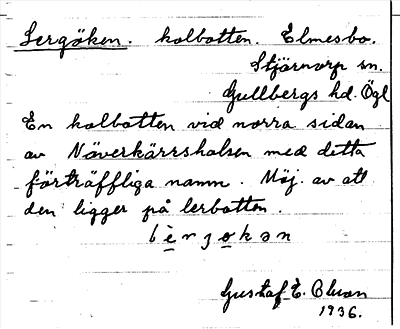 Lergöken. kolbotten. Elmesbo.
Stjärnorp sn.
Gullbergs hd. Ögl
En kolbotten vid norra sidan
av Näverkärrshalsen med detta
förträffliga namn. Möj. av att
den ligger på lerbotten.
Gustaf E. Olson
1936.